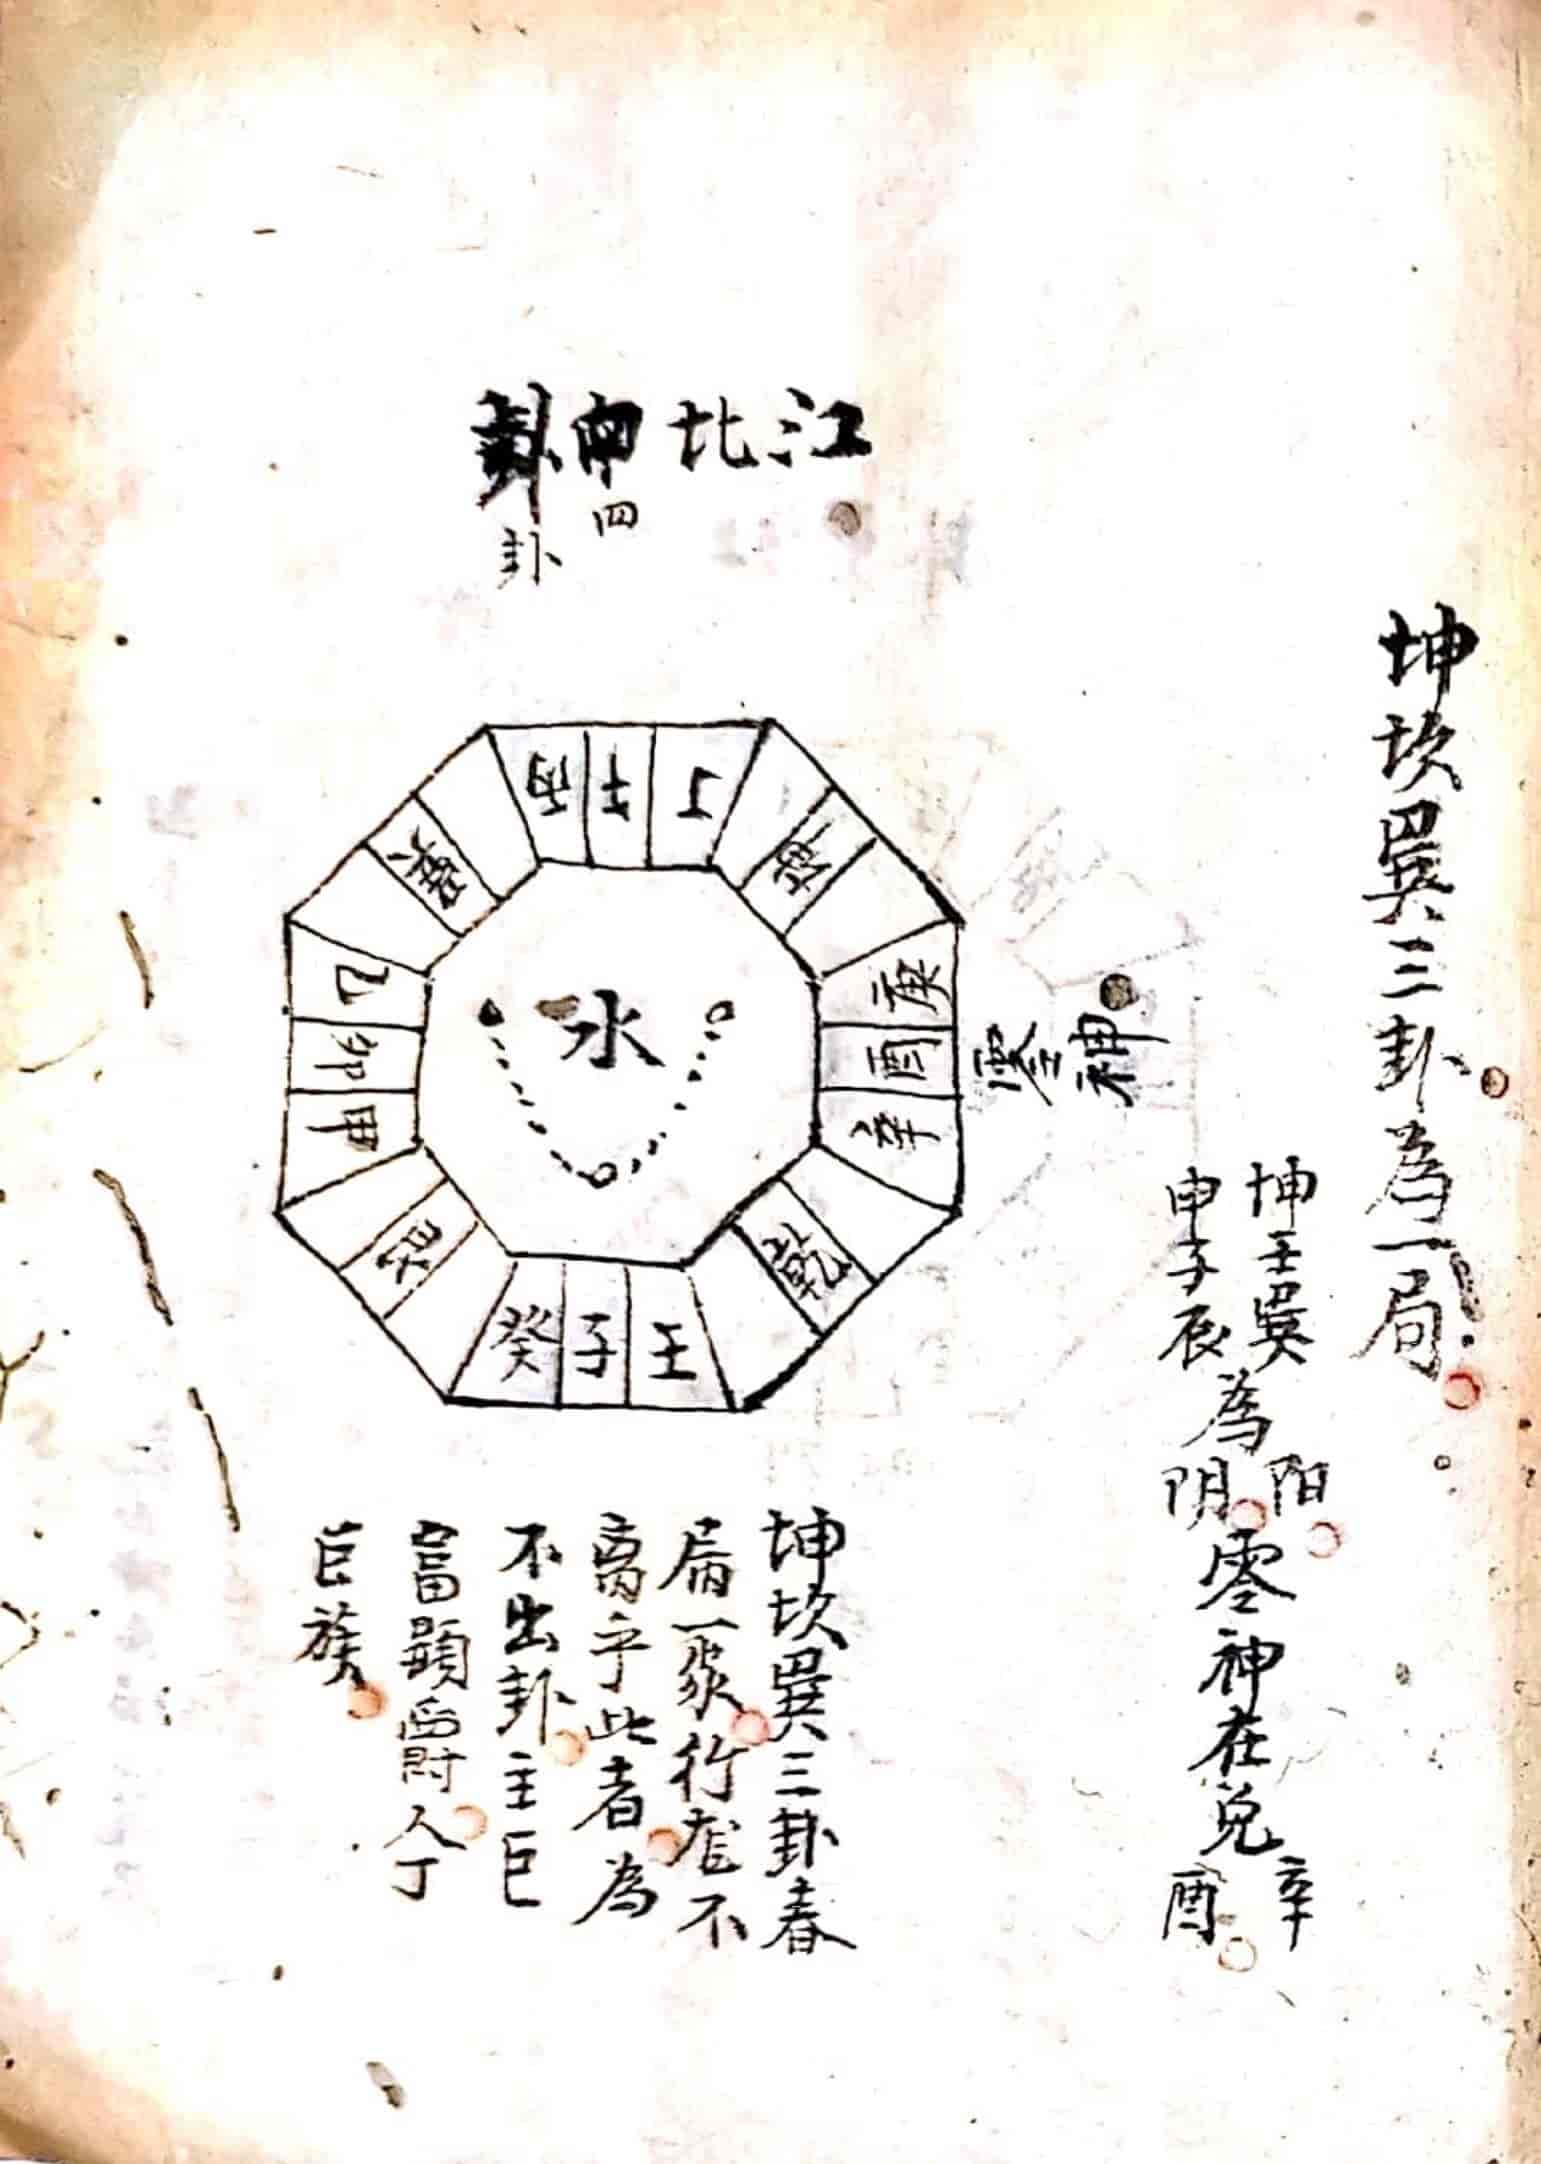 江北四卦
四
卦
坤坎巽三卦為一局
坤壬巽
申子辰
為
阳
阴
零神在兌
辛
酉
零神
丙午丁
坤
庚酉辛
乾
壬子癸
艮
甲卯乙
巽
水
坤坎巽三卦春
屬一家行龙不
离乎此者為
不出卦主巨
富顯爵人丁
巨族